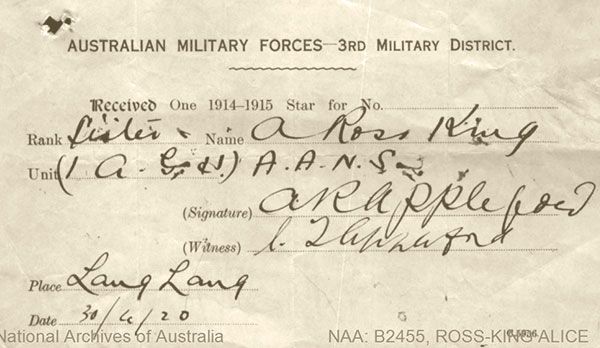 AUSTRALIAN MILITARY FORCES—3RD MILITARY DISTRICT.
Received One 1914-1915 Star for No.
Rank Sister Name A Ross King
Unit (1 A.G.H.) A.A.N.S.
(Signature) A R Appleford
(Witness) Appleford
Place Lang Lang
Date 30/4/20
National Archives of Australia NAA: B2455, ROSS-KING ALICE